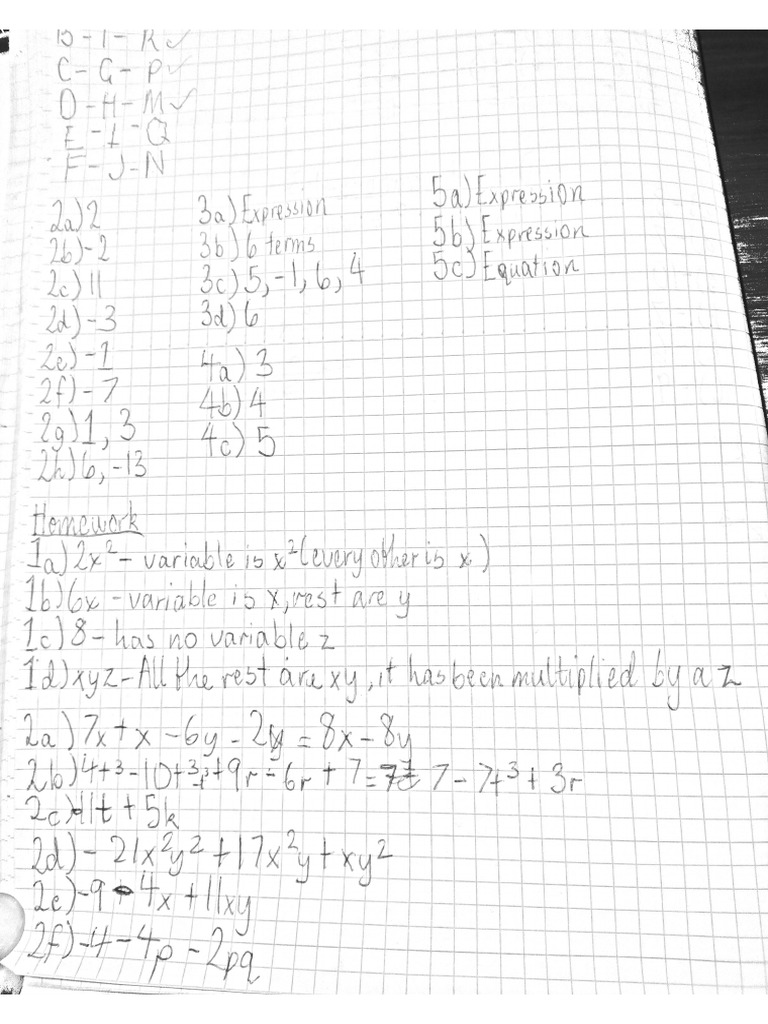 B-I-R✓
C-G-P✓
D-H-M✓
E-L-Q
F-J-N
2a)2
2b)-2
2c)11
2d)-3
2e)-1
2f)-7
2g)1, 3
2h)6, -13
3a)Expression
3b)6 terms
3c)5,-1, 6, 4
3d)6
4a)3
4b)4
4c)5
5a)Expression
5b)Expression
5c)Equation
Homework
1a)2x² - variable is x² (every other is x)
1b)6x - variable is x, rest are y
1c)8 - has no variable z
1d)xyz - All the rest are xy, it has been multiplied by a z
2a)7x + x - 6y - 2y = 8x - 8y
2b)4t³ - 10t³ + 9r - 6r + 7 = 7 - 7t³ + 3r
2c) 11t + 5k
2d) - 21x²y² + 17x²y + xy²
2e)-9 - 4x + 11xy
2f)-4 - 4p - 2pq